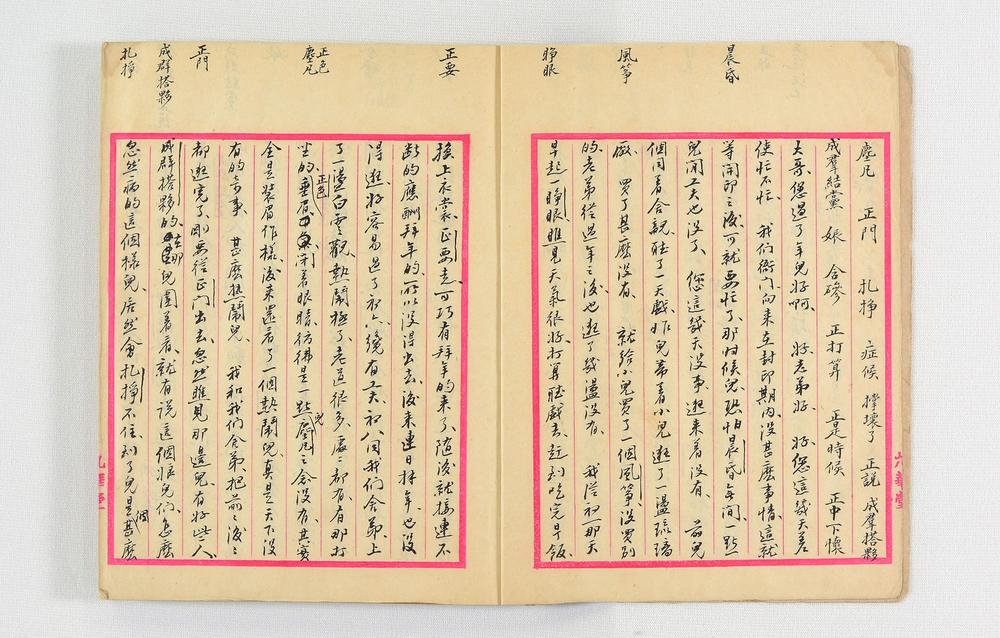 晨昏
風箏
睜眼
塵凡 正門 扎掙 症候 撑壞了 正説 成羣搭夥
成羣結黨 娠 合磣 正打算 正是時候 正中下懷
大哥您過了年兒好啊 好老弟好 好您這幾天差
使忙不忙 我们衙门向来在封印期内没甚麽事情這就
等開印之後可就要忙了那时候兒恐怕晨昏午间一點
兒閒工夫也没了 您這幾天没事逛来着没有 前兒
個同着合親聴了天戯昨兒帶着小兒逛了一盪琉璃
廠 買了甚麽没有 就给小兒買了一個風箏没買别
的老弟從過年之後也逛了幾盪没有 我從初一那天
早起一睁眼瞧見天氣很好打算聴戯去赶到吃完早飯
正要
正色
塵凡
正門
成群搭夥
扎掙
換上衣裳正要走可巧有拜年的来了随後就接連不
断的應酬拜年的所以没得出去後来連日拜年也没
得逛好容易過了初六纔有工夫初八同我们舍弟上
了一盪白雲觀熱鬧極了老道很多處二都有有那打
坐的垂眉正色闭着眼睛彷彿是一點兒塵凡之念没有其實
全是裝眉作樣後来還看了一個熱鬧兒真是天下没
有的奇事 甚麽热鬧兒 我和我们舍弟把前二後二
都逛完了剛要從正门出去忽然瞧見那邊兒有好些人
成群搭夥的在那兒圍着看就有説這個娘兒们怎麽
忽然病的這個樣兒居然會扎掙不住到了兒是個甚麽